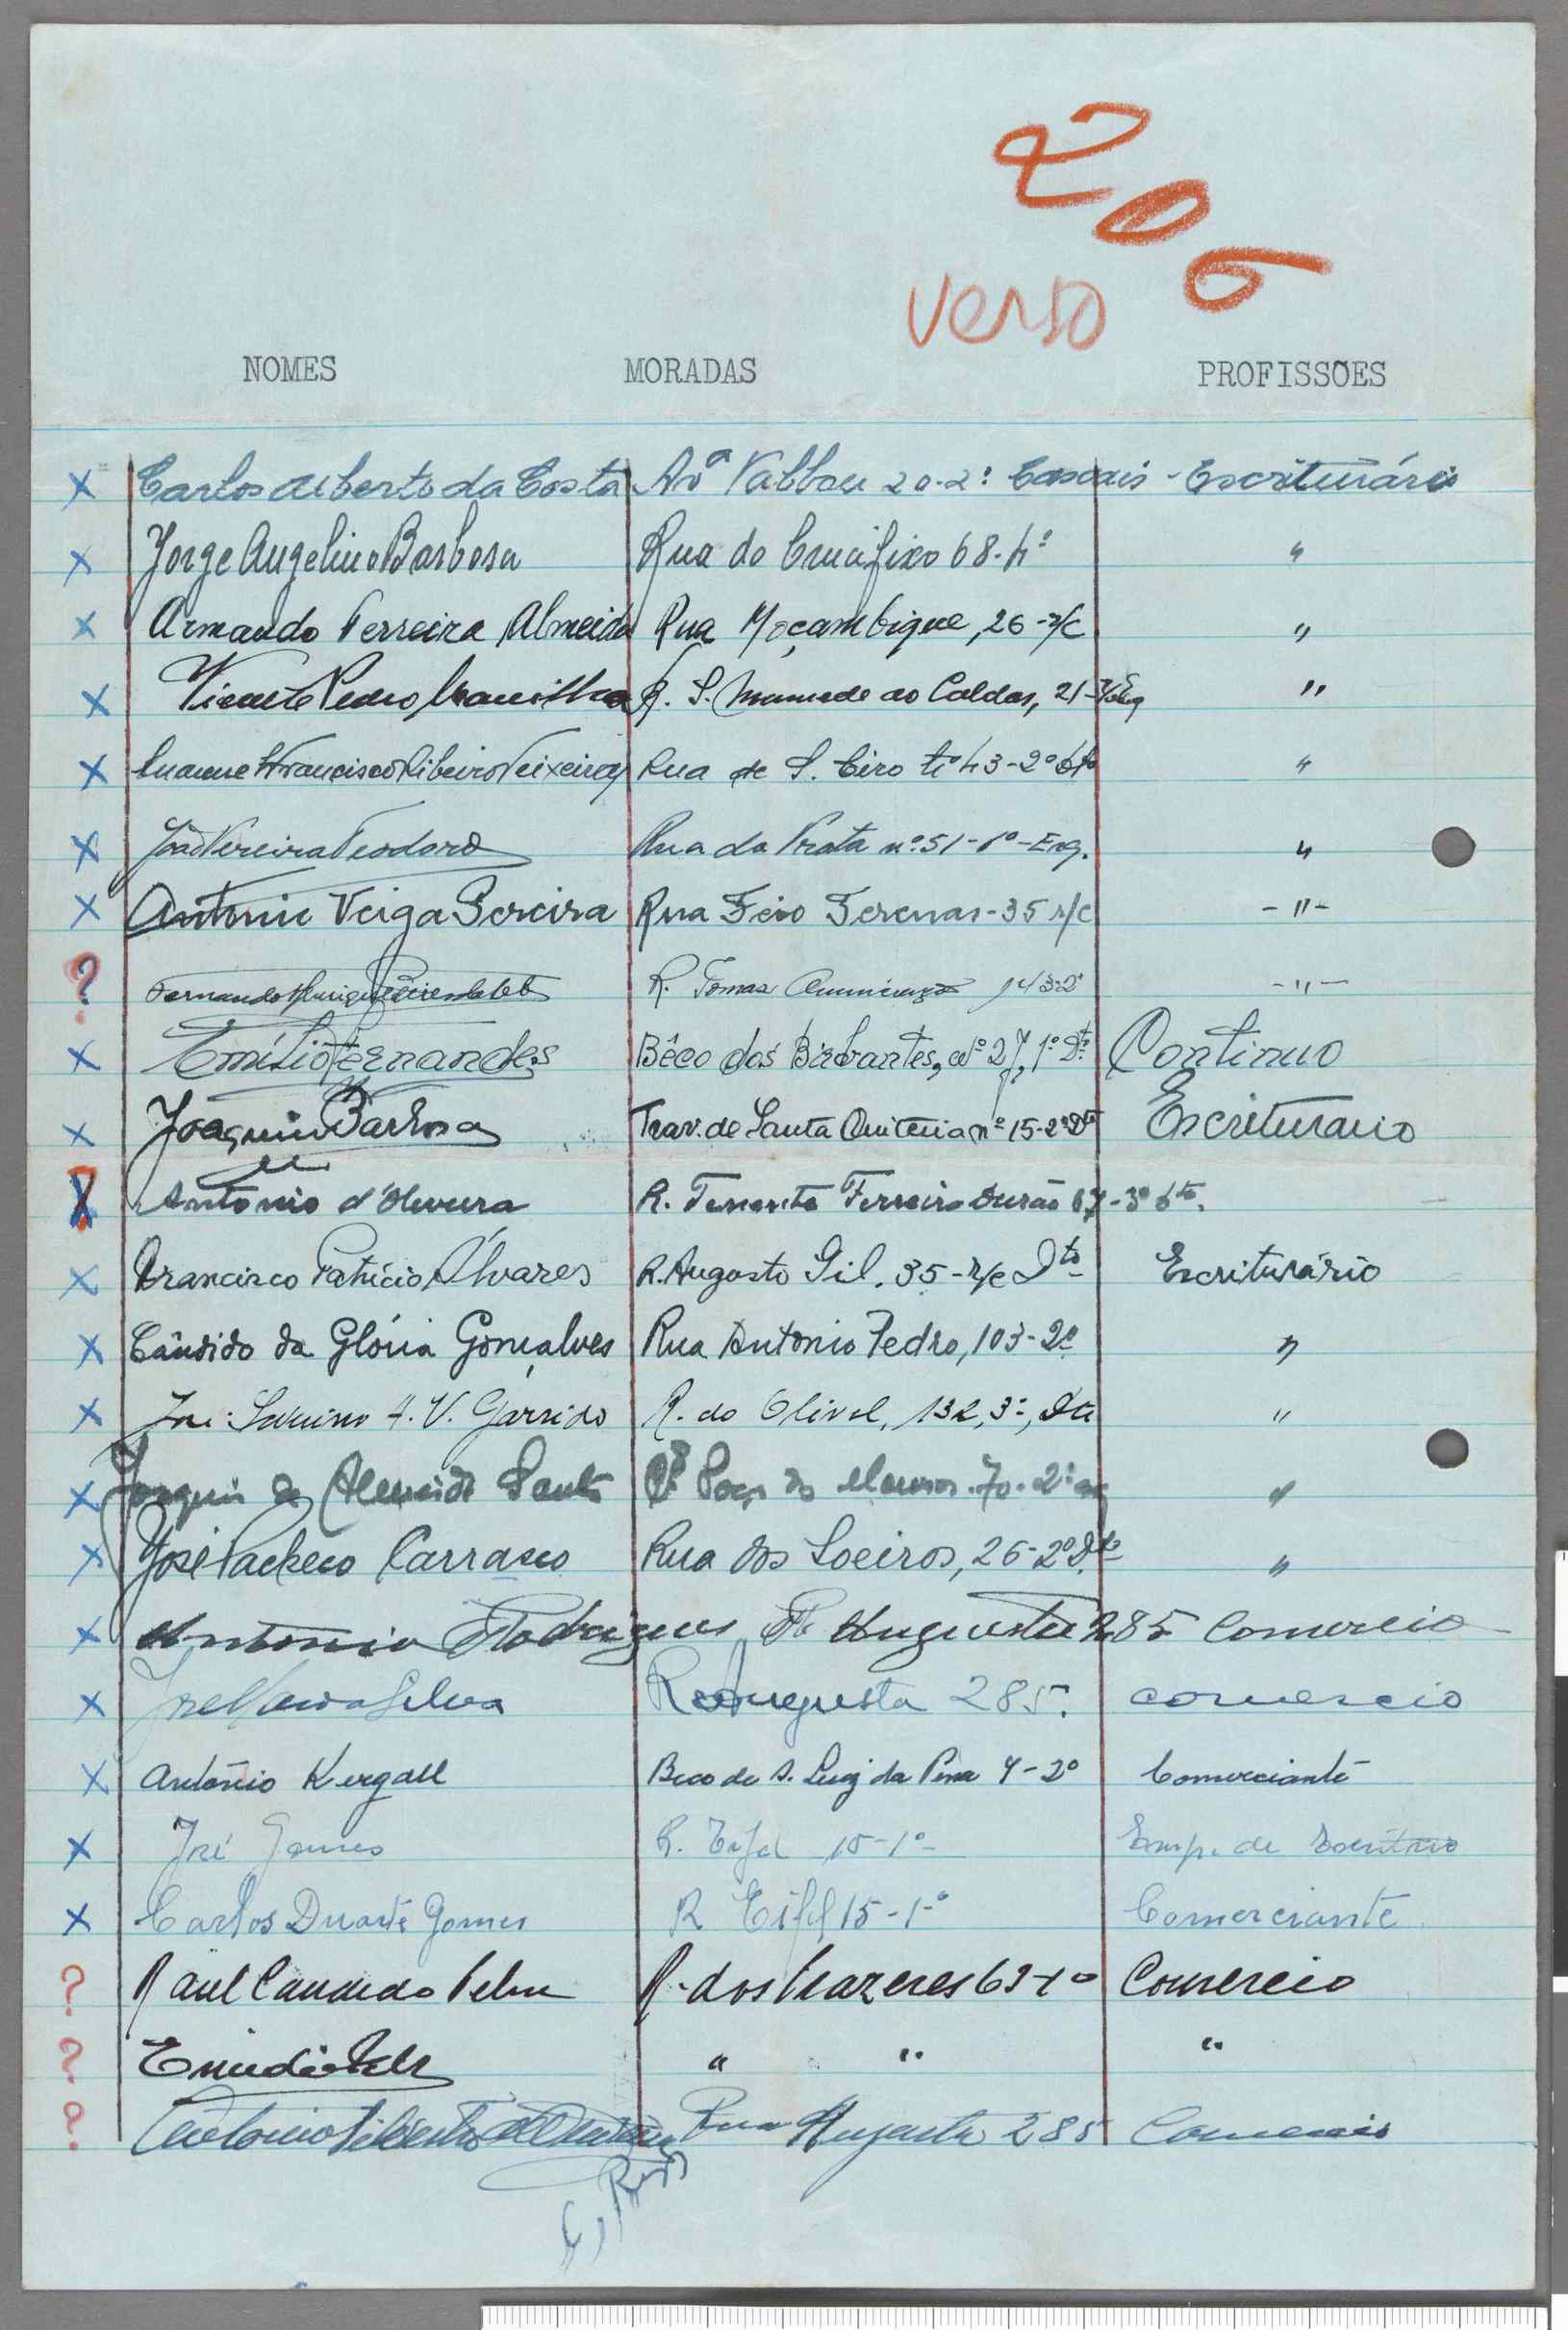 206
verso
NOMES MORADAS PROFISSÕES
Carlos Alberto da Costa Avª Valbom 20-2º Cascais - Escriturário
Jorge Angelino Barbosa Rua do Crucifixo 68-4º "
Armando Ferreira Almeida Rua Moçambique, 26-r/c "
Vicente Pedro R. S. Mamede ao Caldas, 21- "
Francisco Ribeiro Teixeira Rua de S. Ciro nº 43-2º "
João Pereira Teodoro Rua da Prata nº 51-1º-Esq. "
Antonio Veiga Pereira Rua Feio Terenas-35 r/c -"-
Fernando Henrique R. Tomas Anunciação 143-2º -"-
Emílio Fernandes Bêco dos Birbantes, nº 27, 1º Dtº Continuo
Joaquim Barbosa Trav. de Santa Quiteria nº 15-2º Dtº Escriturario
Antonio d'Oliveira R. Tenente Ferreira Durão 67-3º
Francisco Patrício Álvares R. Augosto Gil, 35-r/c Dtº Escriturário
Cândido da Glória Gonçalves Rua Antonio Pedro, 103-2º "
José A. V. Garrido R. do Olival, 132, 3º, Dto "
Joaquim de Almeida Santos Poço dos Mouros 70-2º "
José Pacheco Carrasco Rua dos Soeiros, 26-2º Dto "
Antonio Rodrigues R. Augusta 285 Comercio
José Silva Rua Augusta 285. comercio
António Kergall Beco de S. Luiz da Pena 4-2º Comerciante
José Gomes R. Eifel 15-1º Emp. de Escritorio
Carlos Duarte Gomes R Eifel 15-1º Comerciante
Raul Candido R. dos Prazeres 63-1º Comercio
" " "
Antonio Rua Augusta 285 Comercio